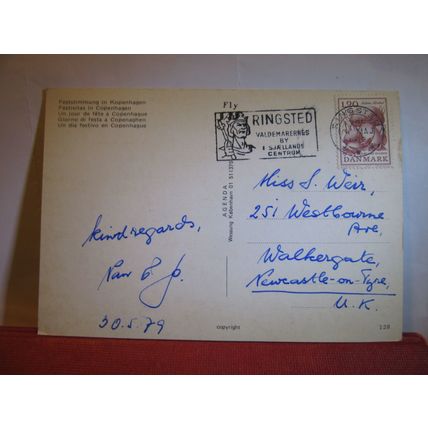 Feststimmung in Kopenhagen
Festivitas in Copenhagen
Un jour de fête à Copenhague
Giorno di festa a Copenaghen
Un dia festivo en Copenhague
Fly
RINGSTED
VALDEMARERNES
BY
I SJÆLLANDS
CENTRUM
120
DANMARK
AGENDA
kind regards,
30.5.79
Miss S. Weir,
251 Westbourne
Ave,
Walkergate,
Newcastle-on-Tyne,
U.K.
copyright